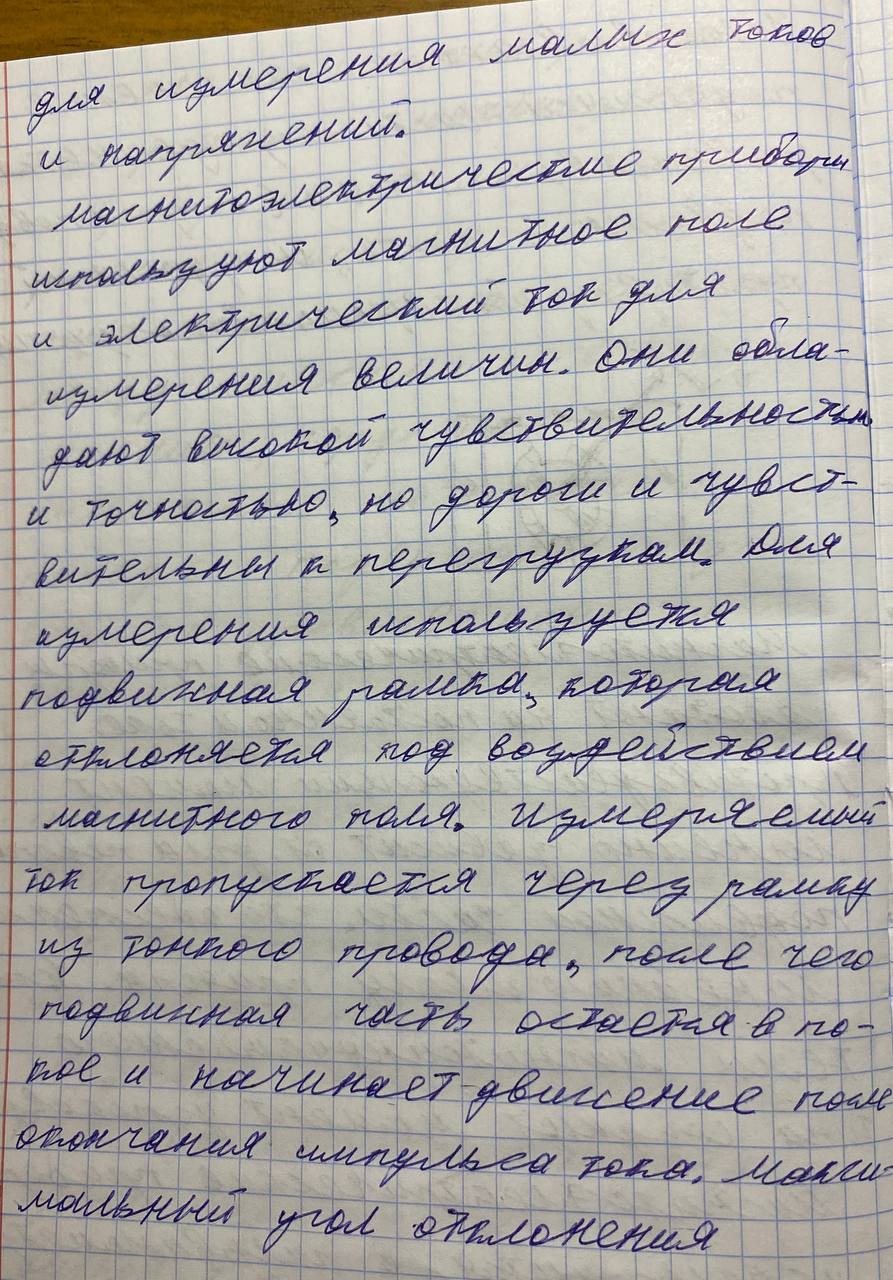 для измерения малых токов
и напряжений.
магнитоэлектрические приборы
используют магнитное поле
и электрический ток для
измерения величин. Они обла-
дают высокой чувствительностью
и точностью, но дороги и чувст-
вительны к перегрузкам. Для
измерения используется
подвижная рамка, которая
отклоняется под воздействием
магнитного поля. Измеряемый
ток пропускается через рамку
из тонкого провода, после чего
подвижная часть остается в по-
кое и начинает движение после
окончания импульса тока. Макси-
мальный угол отклонения